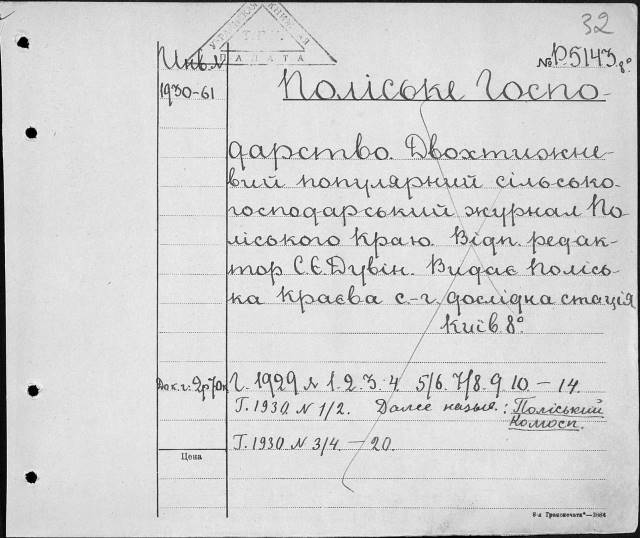 32
УКРАЇНСЬКА КНИЖНАЯ
ПАЛАТА
Инв. №
№ Р5143 8°
1930-61
Поліське Госпо-
дарство. Двохтижне-
вий популярний сільсько-
господарський журнал По-
ліського Краю. Відп. редак-
тор С.Є. Дувін. Видає Полісь-
ка Краєва с.-г. дослідна стація
Київ. 8°.
Г. 1929 № 1. 2. 3. 4 5/6. 7/8. 9 10. — 14.
Г. 1930 № 1/2. Далее назыв.: Поліський
Колгосп.
Г. 1930 № 3/4. — 20.
Цена